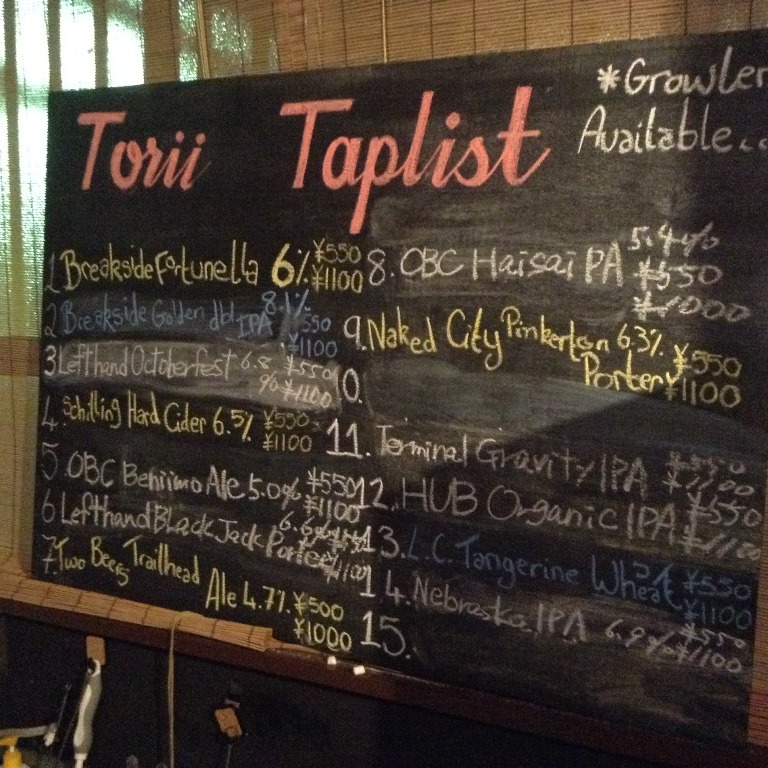 Torii Taplist
*Growler
Available..
1 Breakside Fortunella 6% ¥550
¥1100
2 Breakside Golden dbl IPA 8.1% ¥550
¥1100
3 Lefthand Octoberfest 6.8 ¥550
% ¥1100
4. Schilling Hard Cider 6.5% ¥550
¥1100
5. OBC Beniimo Ale 5.0% ¥550
¥1100
6 Lefthand Black Jack Porter
¥1100
7. Two Beers Trailhead
Ale 4.7% ¥500
¥1000
8. OBC Haisai PA 5.4% ¥550
¥1000
9. Naked City Pinkerton 6.3% ¥550
Porter ¥1100
10.
11. Terminal Gravity IPA ¥550
¥1100
12. HUB Organic IPA ¥550
¥1100
13. L.C. Tangerine Wheat ¥550
¥1100
14. Nebraska IPA 6.9% ¥550
¥1100
15.